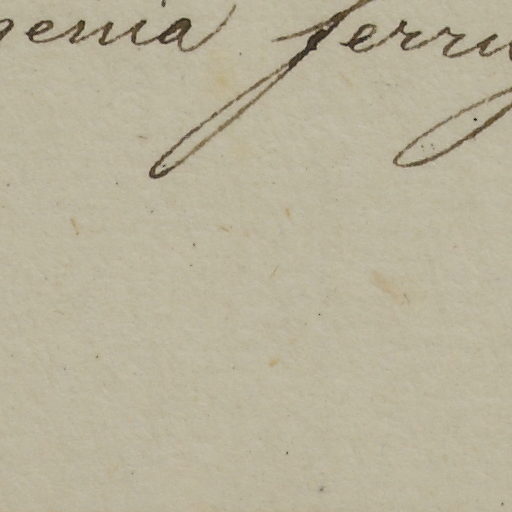 genia ferru